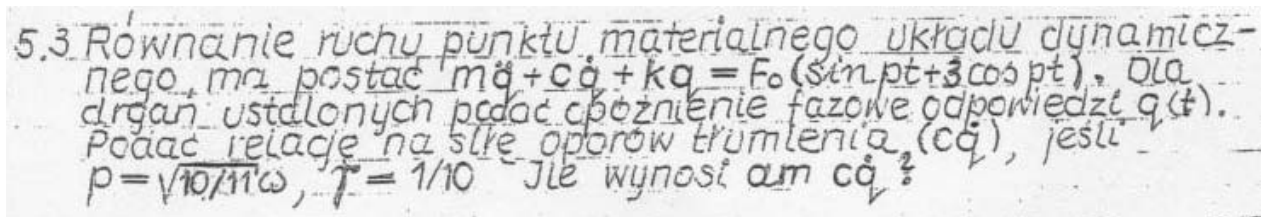 5.3 Równanie ruchu punktu materialnego układu dynamicz-
nego, ma postać mq̈+cq̇+kq = F₀(sin pt+3cos pt). Dla
drgań ustalonych podać opóźnienie fazowe odpowiedzi q(t).
Podać relację na siłę oporów tłumienia (cq̇), jeśli
p=√10/11 ω, γ = 1/10 Ile wynosi am cq̇?